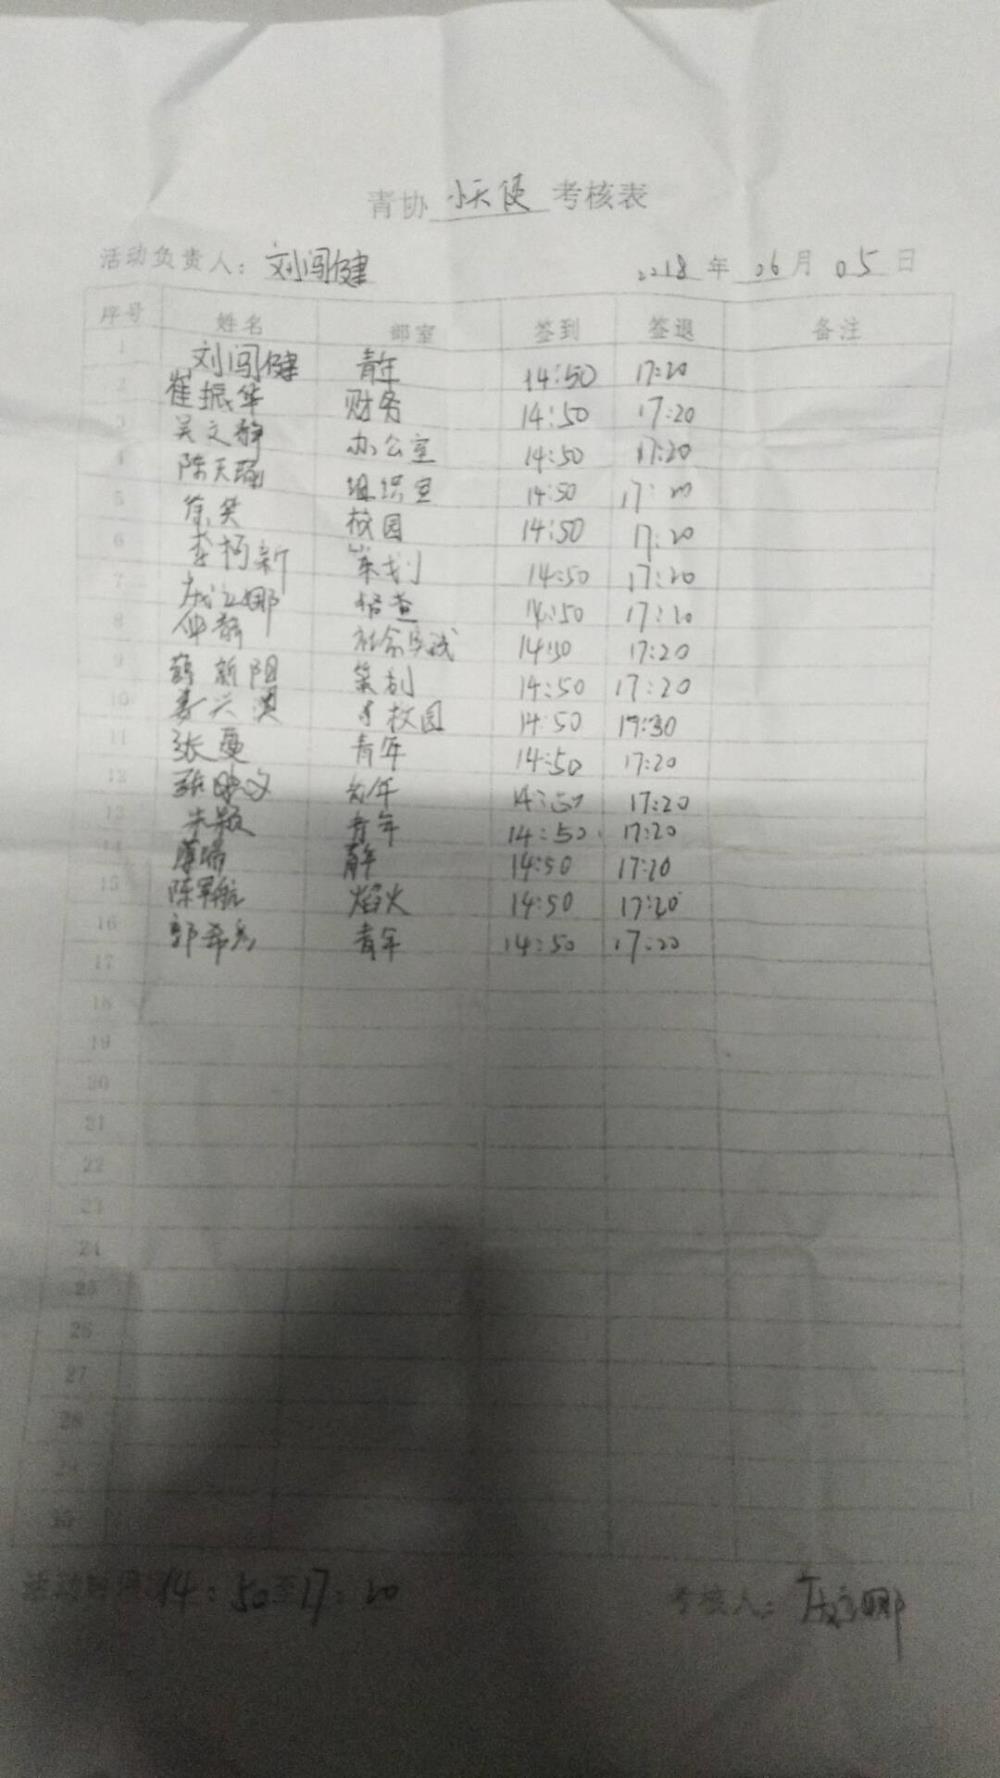 青协 小天使 考核表
活动负责人：刘闯健 2018 年 06 月 05 日
序号 姓名 部室 签到 签退 备注
1 刘闯健 青年 14:50 17:20
2 崔振华 财务 14:50 17:20
3 吴文静 办公室 14:50 17:20
4 陈天 组织室 14:50 17:20
5 徐笑 校园 14:50 17:20
6 李柯新 策划 14:50 17:20
7 娜 稽查 14:50 17:20
8 仲 社会实践 14:50 17:20
9 新阳 策划 14:50 17:20
10 兴 校园 14:50 17:30
11 张曼 青年 14:50 17:20
12 张 青年 14:50 17:20
13 朱颖 青年 14:50 17:20
14 瑞 青年 14:50 17:20
15 陈军航 焰火 14:50 17:20
16 郭希 青年 14:50 17:20
17
18
19
20
21
22
23
24
25
26
27
28
29
30
活动时间：14:50至17:20 考核人： 娜